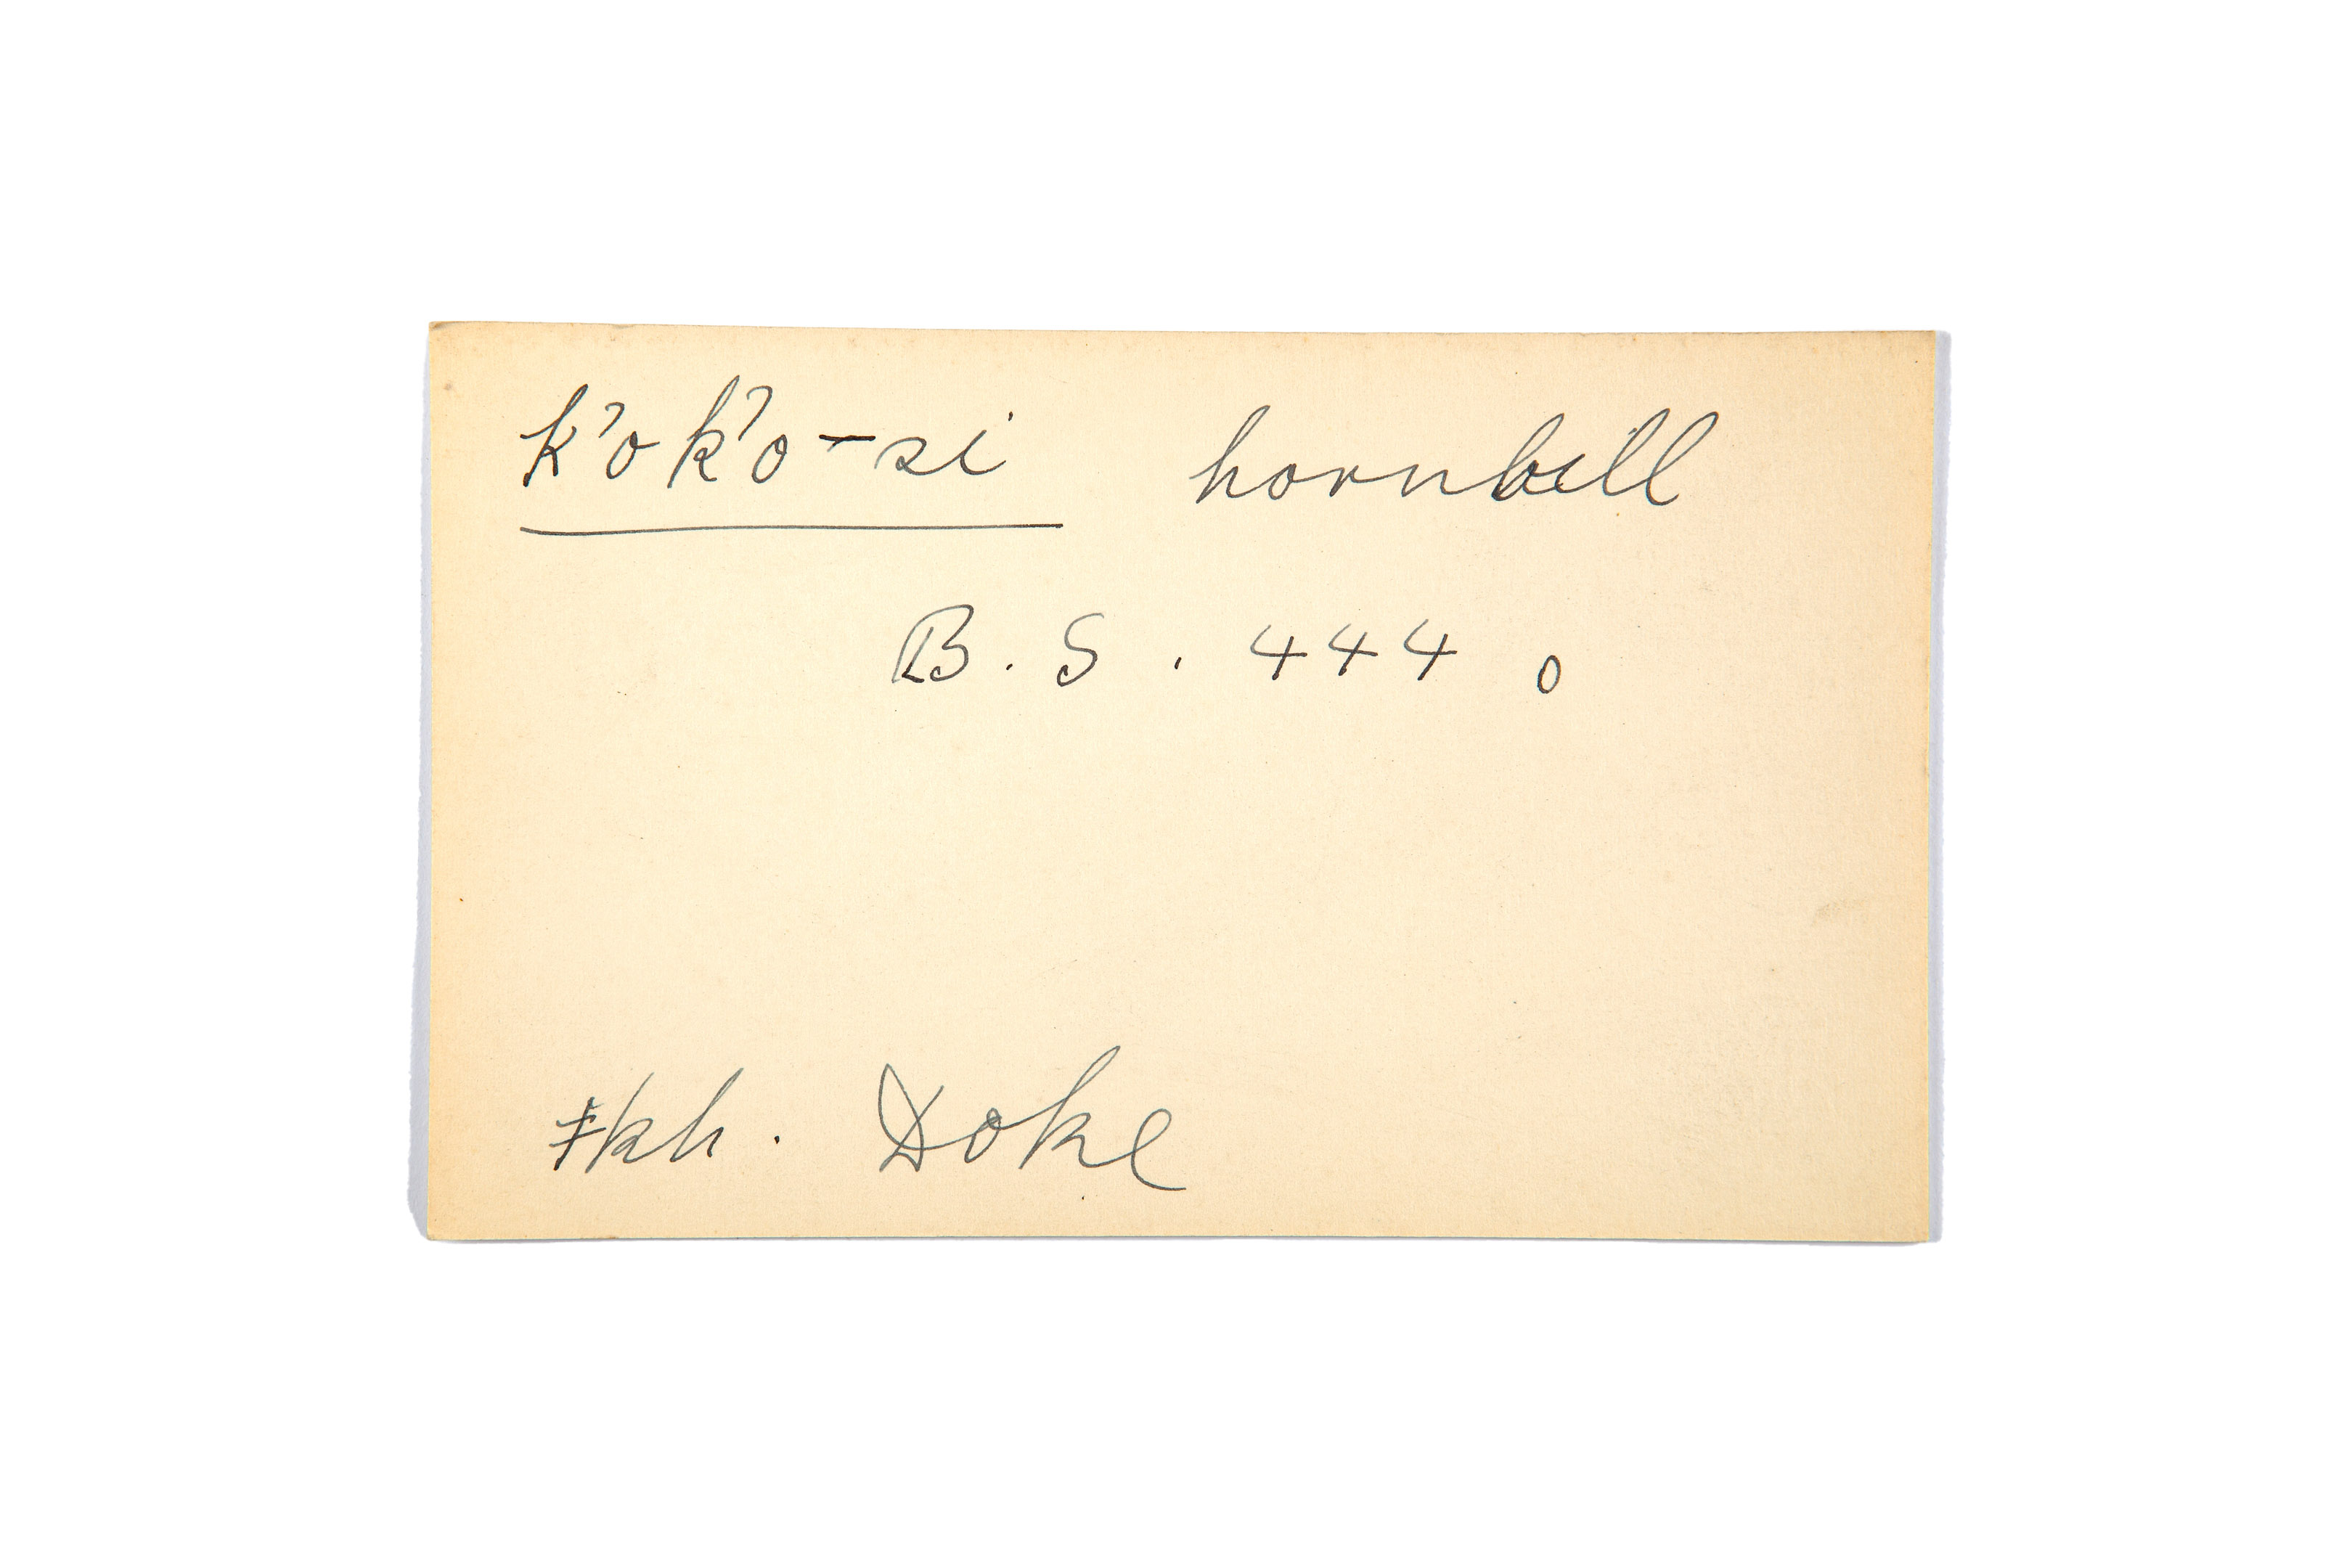 k'ok'o-si hornbill
B. S. 444 o
ǂkh. Doke